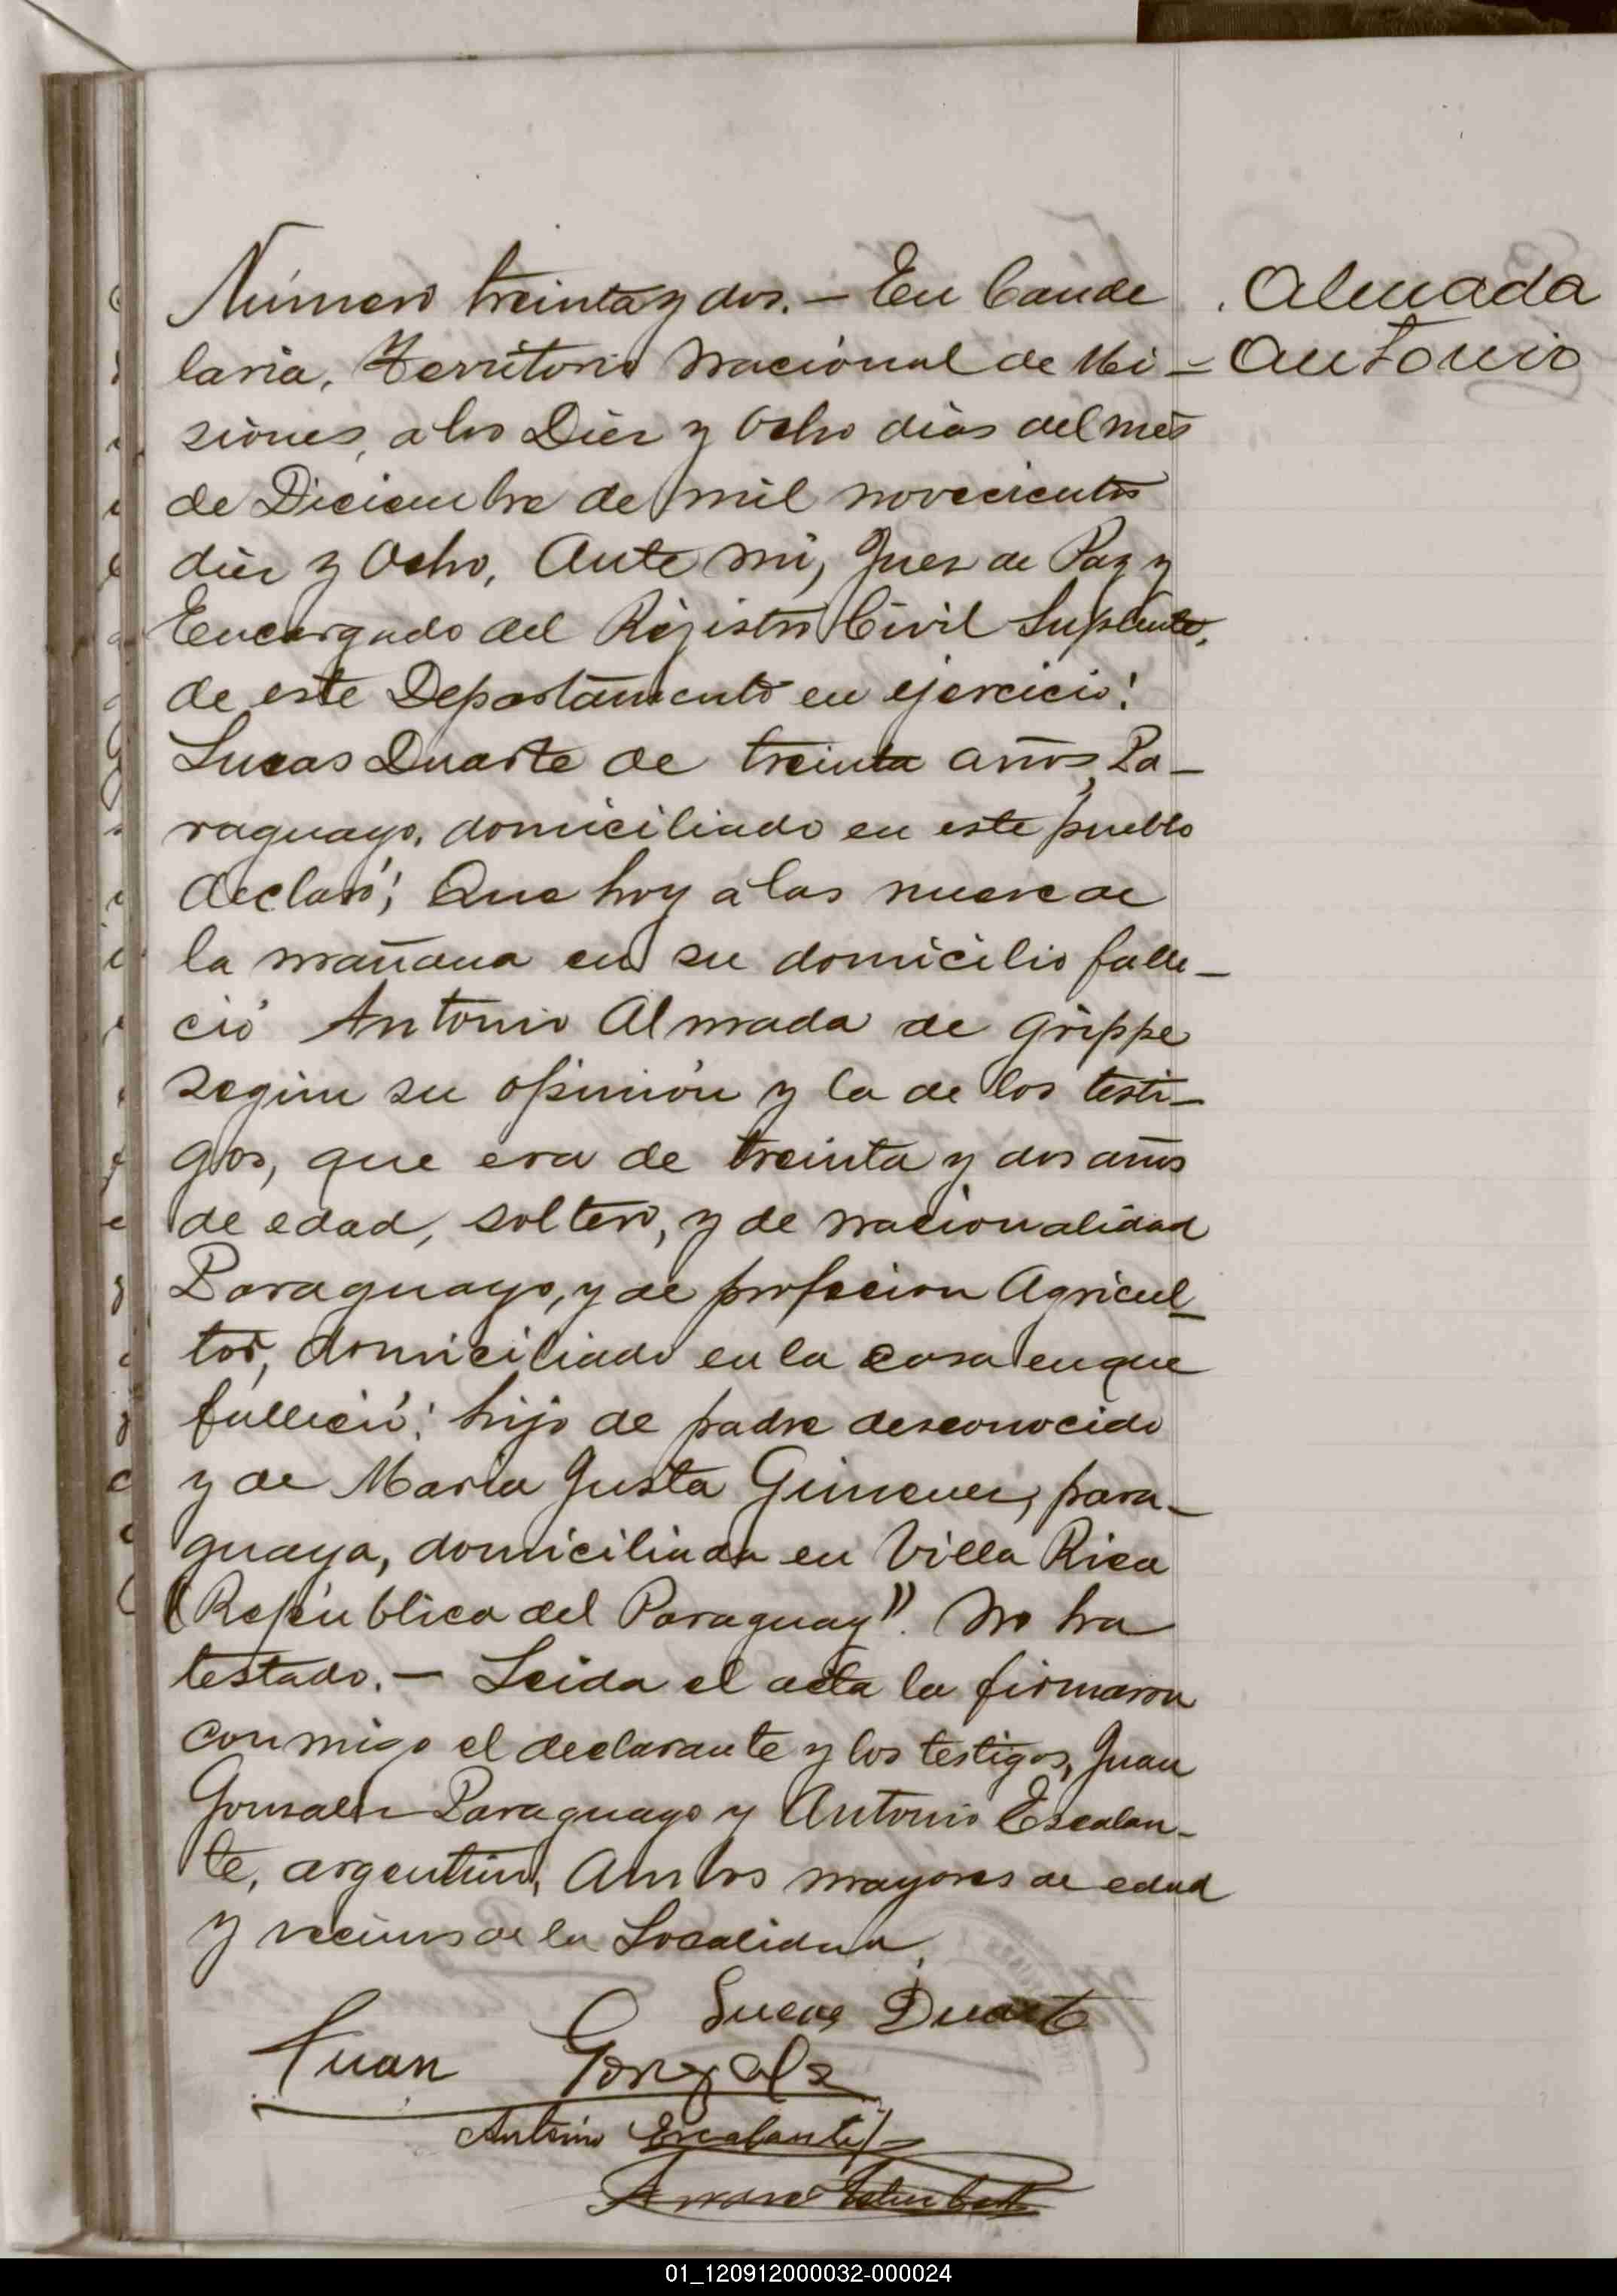 Número treinta y dos. — En Cande
laria, Territorio Nacional de Mi -
siones, a los Diez y Ocho dias del mes
de Diciembre de mil novecientos
diez y Ocho, Ante mi, Juez de Paz y
Encargado del Registro Civil Suplente,
de este Departamento en ejercicio:
Lucas Duarte de treinta años, Pa -
raguayo, domiciliado en este pueblo
declaró; Que hoy a las nueve de
la mañana en su domicilio falle -
ció Antonio Almada de grippe
segun su opinión y la de los testi -
gos, que era de treinta y dos años
de edad, soltero, y de nacionalidad
Paraguayo, y de profecion Agricul -
tor, domiciliado en la casa en que
falleció: hijo de padre desconocido
y de Maria Justa Gimenez, para -
guaya, domiciliada en Villa Rica
(República del Paraguay". No ha
testado. — Leida el acta la firmaron
conmigo el declarante y los testigos, Juan
Gonsalez Paraguayo y Antonio Escalan -
te, argentino, Ambos mayores de edad
y vecinos de la Localidad.
Lucas Duarte
Juan Gonzalz
Antonio Escalante
Almada
Antonio
01_120912000032-000024